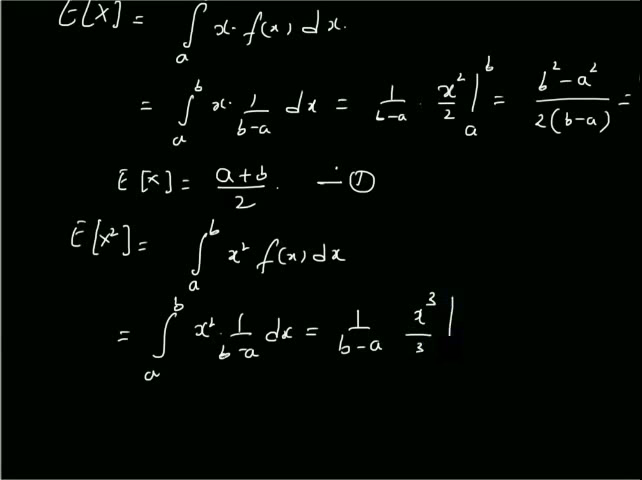 E[X] = ∫ₐ x. f(x) dx.
= ∫ₐᵇ x. 1/(b-a) dx = 1/(b-a) . x²/2 |ₐᵇ = (b²-a²)/(2(b-a)) =
E[X] = (a+b)/2. — ①
E[X²] = ∫ₐᵇ x² f(x) dx
= ∫ₐᵇ x². 1/(b-a) dx = 1/(b-a) x³/3 |